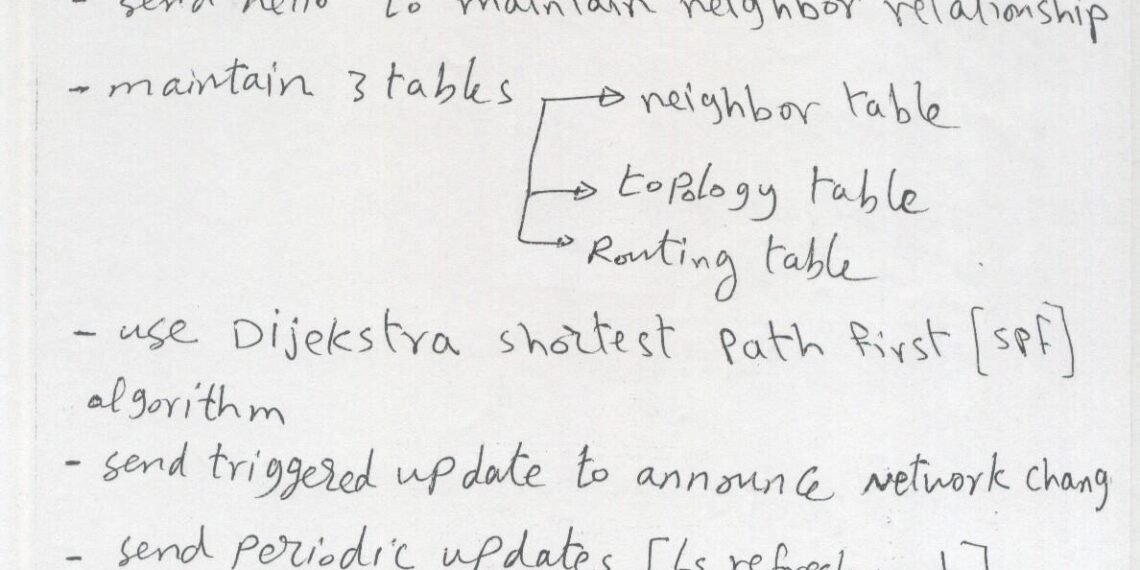 - send hello to maintain neighbor relationship
- maintain 3 tables → neighbor table
→ topology table
→ Routing table
- use Dijekstra shortest path first [spf]
algorithm
- send triggered update to announce network chang
- send periodic updates [ls refresh